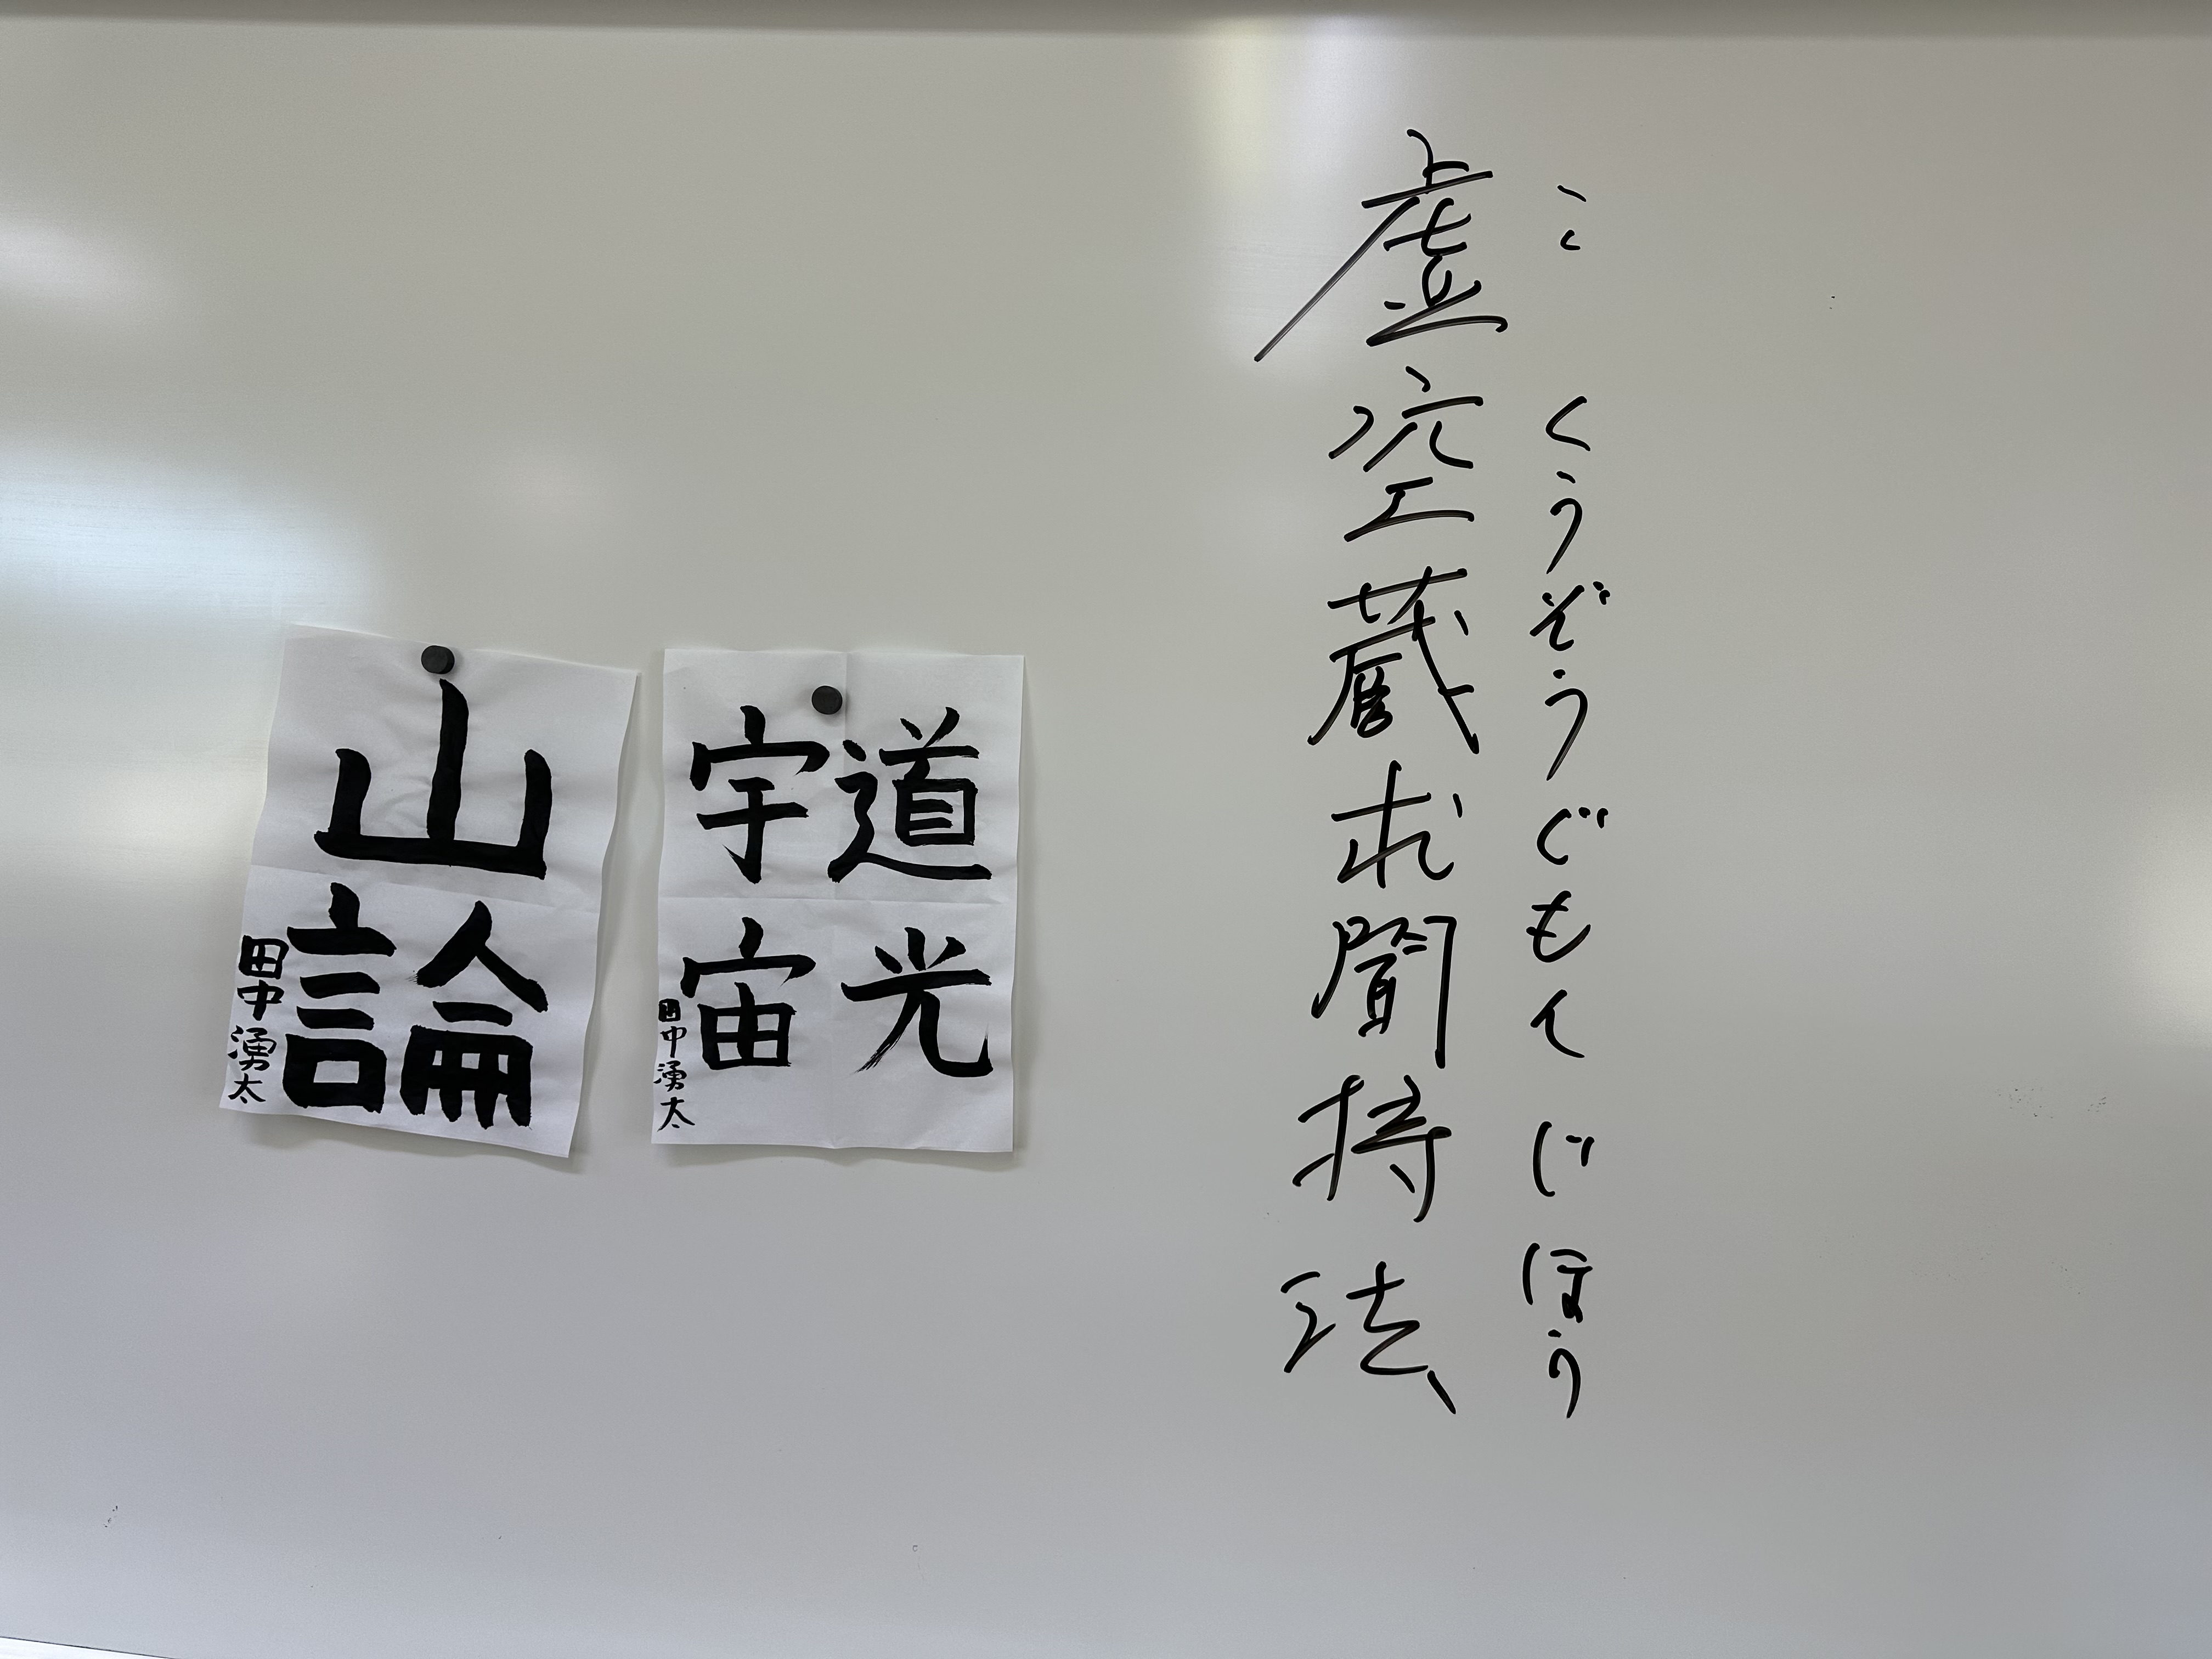 こくうぞうぐもんじほう
虚空蔵求聞持法
道光
宇宙
田中湧太
山
論
言
田中湧太